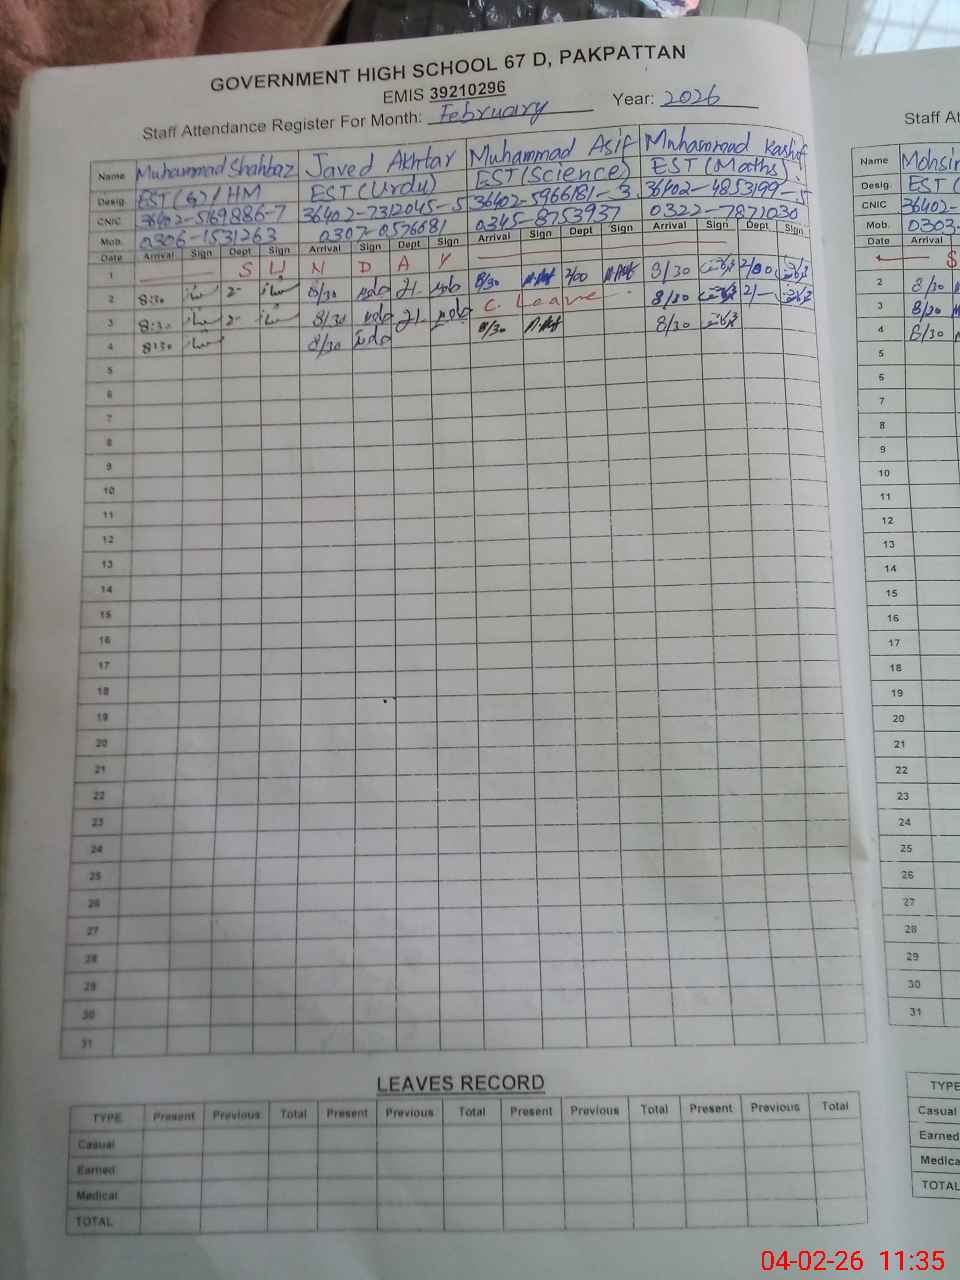 GOVERNMENT HIGH SCHOOL 67 D, PAKPATTAN
EMIS 39210296
Staff Attendance Register For Month: February Year: 2026
Name Muhammad Shahbaz Javed Akhtar Muhammad Asif Muhammad Kashif
Desig. EST (S) / HM EST (Urdu) EST (Science) EST (Maths)
CNIC 36402-7312045-5 36402-5966181-3 36402-4853199-5
Mob. 0306-1531263 0307-0576681 0345-8753937 0322-7871030
Date Arrival Sign Dept Sign Arrival Sign Dept Sign Arrival Sign Dept Sign Arrival Sign Dept Sign
1 S U N D A Y
2 8:30 2- 8/30 2/- 8/30 2/00 8/30 2/00
3 8:30 2- 8/30 2/- C. Leave 8/30 2/-
4 8:30 8/30 8/30 8/30
5
6
7
8
9
10
11
12
13
14
15
16
17
18
19
20
21
22
23
24
25
26
27
28
29
30
31
LEAVES RECORD
TYPE Present Previous Total Present Previous Total Present Previous Total Present Previous Total
Casual
Earned
Medical
TOTAL
Staff At
Name Mohsin
Desig. EST (
CNIC 36402-
Mob. 0303-
Date Arrival
S
2 8/30
3 8/30
4 8/30
5
6
7
8
9
10
11
12
13
14
15
16
17
18
19
20
21
22
23
24
25
26
27
28
29
30
31
TYPE
Casual
Earned
Medica
TOTAL
04-02-26 11:35